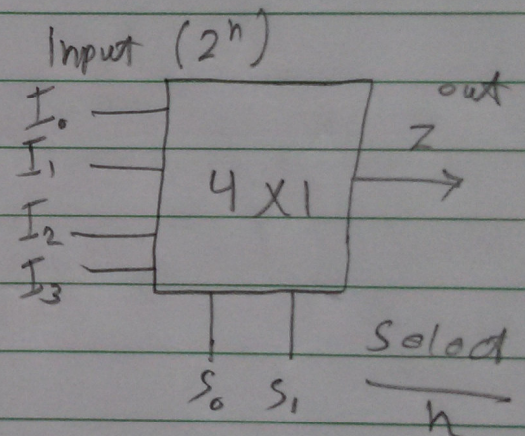 Input (2ⁿ)
I₀
I₁
I₂
I₃
4X1
out
Z
S₀ S₁
Select
n